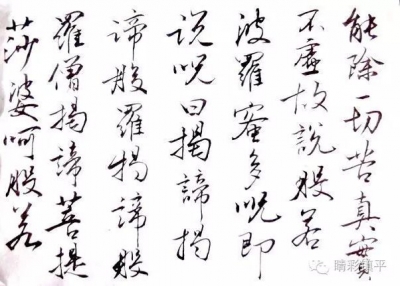 能除一切苦真實
不虛故說般若
波羅蜜多呪即
說呪曰揭諦揭
諦般羅揭諦般
羅僧揭諦菩提
莎婆呵般若
睛彩镇平